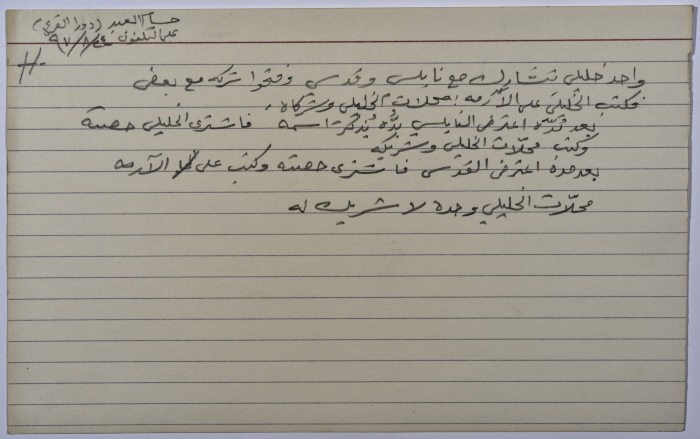 حسام العبد (دورا القرع)
على التلفون ٩٧/٨/٤٠
H.
واحد خليلي تشارك مع نابلسي وقدسي وفتحوا شركة مع بعض
فكتب الخليلي على الآرمه: محلات الخليلي وشركاه.
بعد مدّة اعترض النابلسي بدُّه يُذكر اسمه فاشترى الخليلي حصته
وكتب محلّات الخليلي وشريكه
بعد مدة اعترض القدسي فاشترى حصته وكتب على الآرمه
محلّات الخليلي وحده لا شريك له